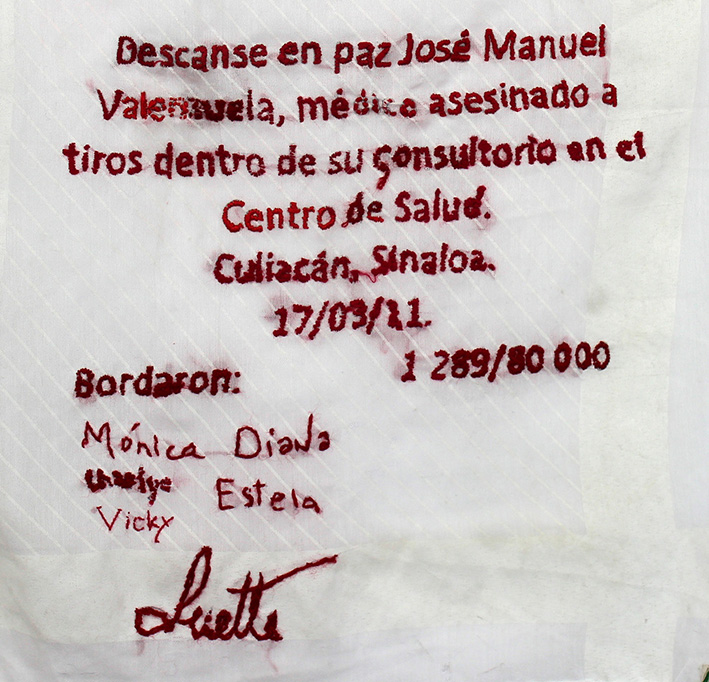 Descanse en paz José Manuel
Valenzuela, médico asesinado a
tiros dentro de su consultorio en el
Centro de Salud.
Culiacán, Sinaloa.
17/03/11.
1 289/80 000
Bordaron:
Mónica Diana
Estela
Vicky